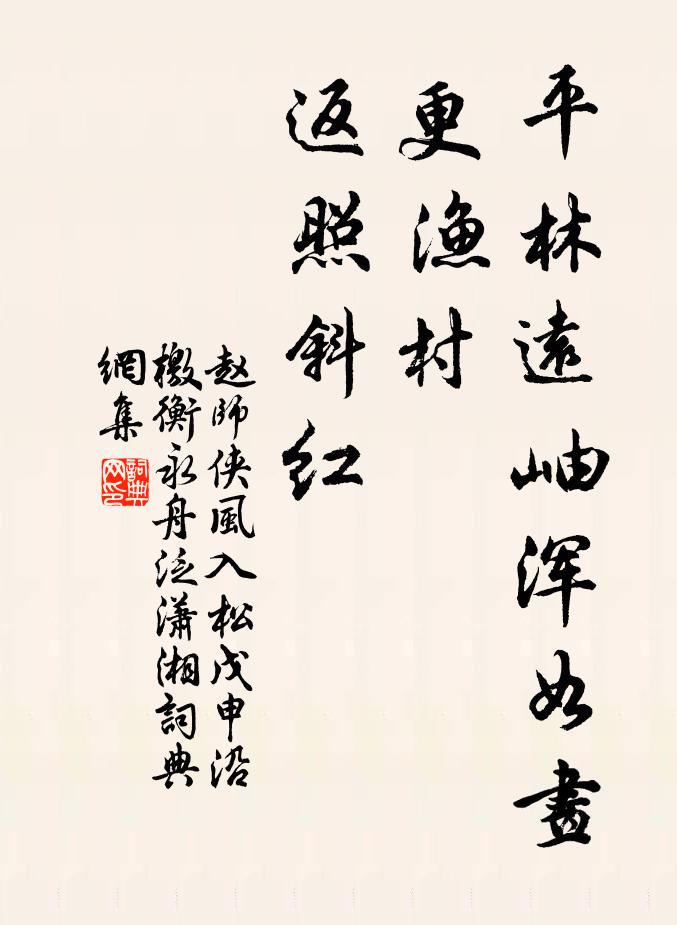 平林遠岫浑如畫
更渔村
返照斜红
赵師侠風入松戊申沿
檄衡永舟泛瀟湘詞典
網集
詞典网印